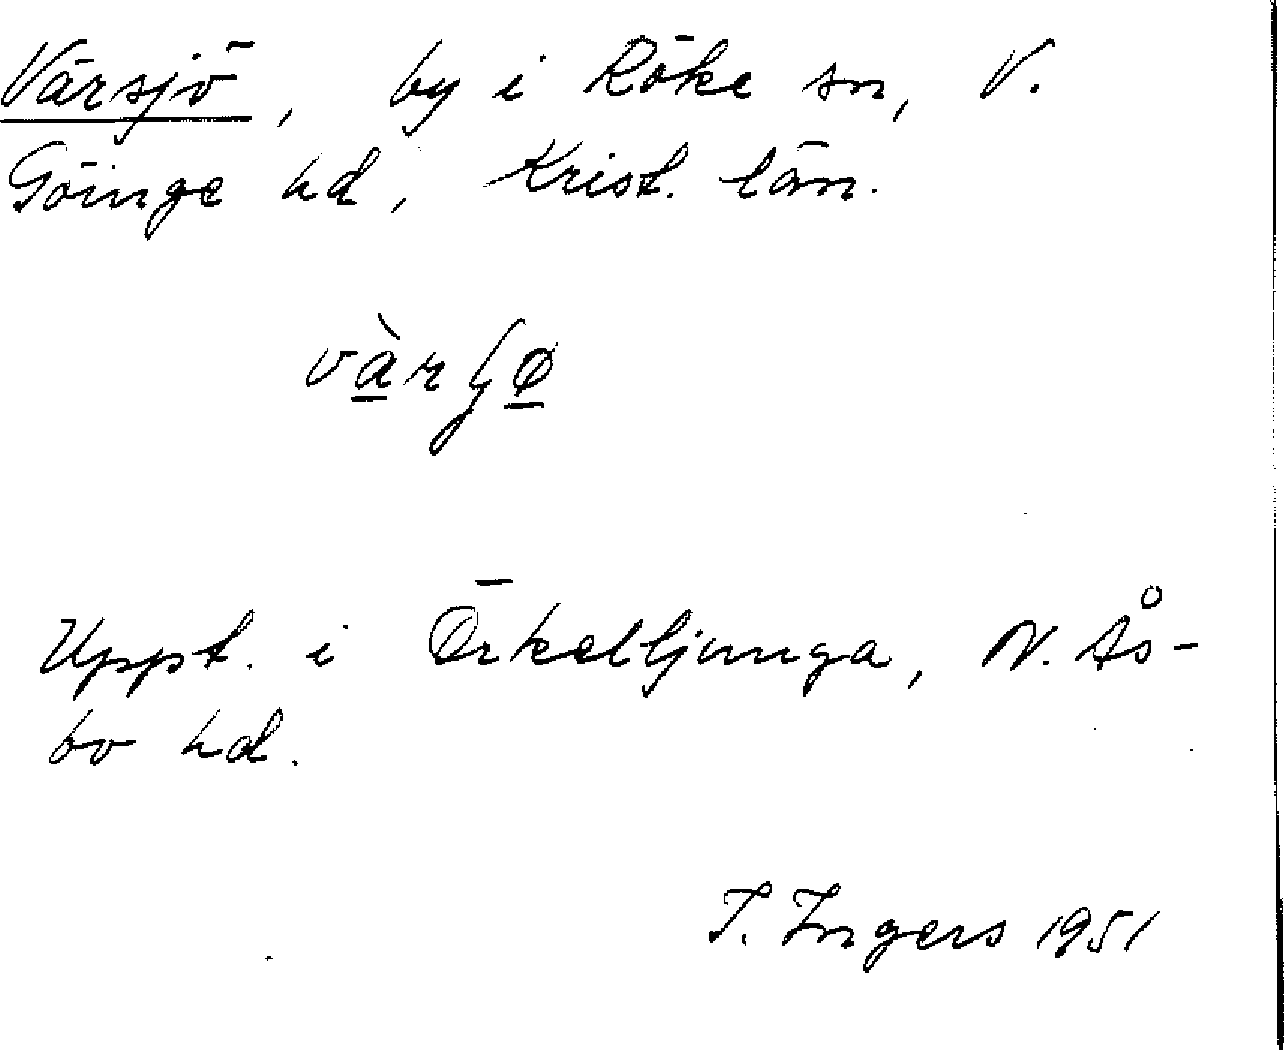 Värsjö, by i Röke sn, V.
Göinge hd, Krist. län.
vàrʃø
Uppt. i Örkelljunga, N. Ås-
bo hd.
I. Ingers 1951